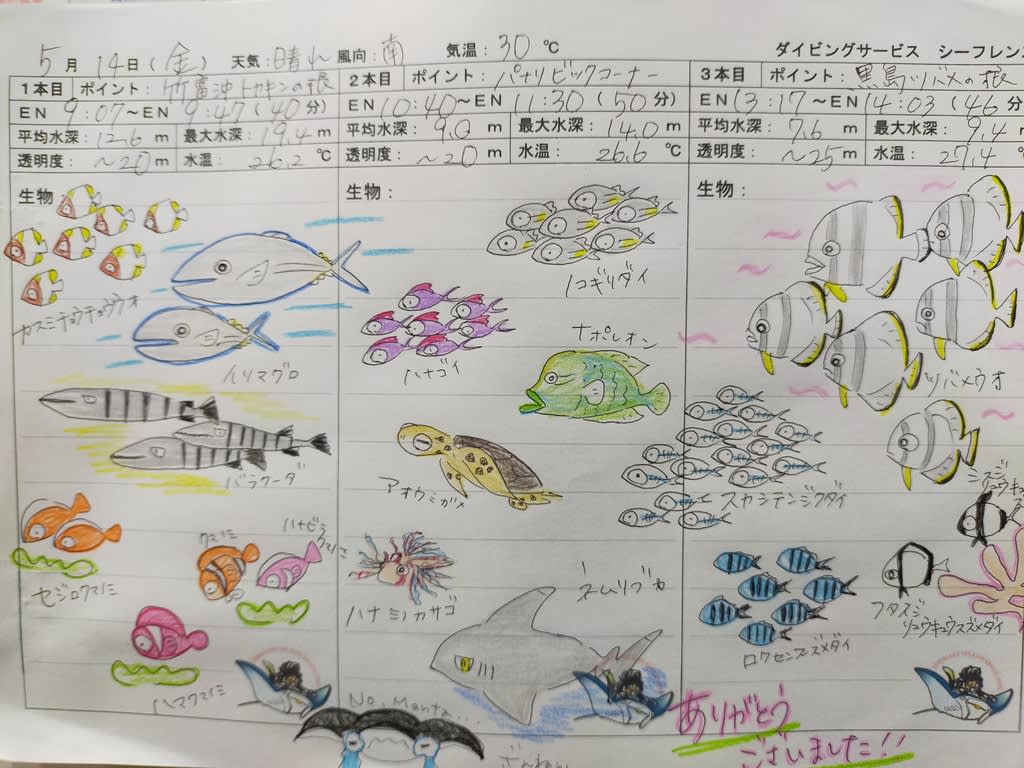 5月14日(金) 天気:晴れ 風向:南 気温:30℃ ダイビングサービス シーフレン
1本目 ポイント:竹富沖トカキンの根
EN 9:07~EN 9:47(40分)
平均水深:12.6m 最大水深:19.4m
透明度:~20m 水温:26.2℃
生物
カスミチョウチョウウオ
イソマグロ
バラクーダ
セジロクマノミ
クマノミ
ハナビラクマノミ
ハマクマノミ
2本目 ポイント:パナリビックコーナー
EN 10:40~EN 11:30(50分)
平均水深:9.0m 最大水深:14.0m
透明度:~20m 水温:26.6℃
生物:
ノコギリダイ
ハナゴイ
ナポレオン
アオウミガメ
ハナミノカサゴ
ネムリブカ
No, Manta...
ざんねん
3本目 ポイント:黒島ツバメの根
EN 13:17~EN 14:03(46分
平均水深:7.6m 最大水深:9.4m
透明度:~25m 水温:27.4℃
生物:
ツバメウオ
スカシテンジクダイ
ミスジリュウキュウス
フタスジ
リュウキュウスズメダイ
ロクセンスズメダイ
ありがとう
ございました!!